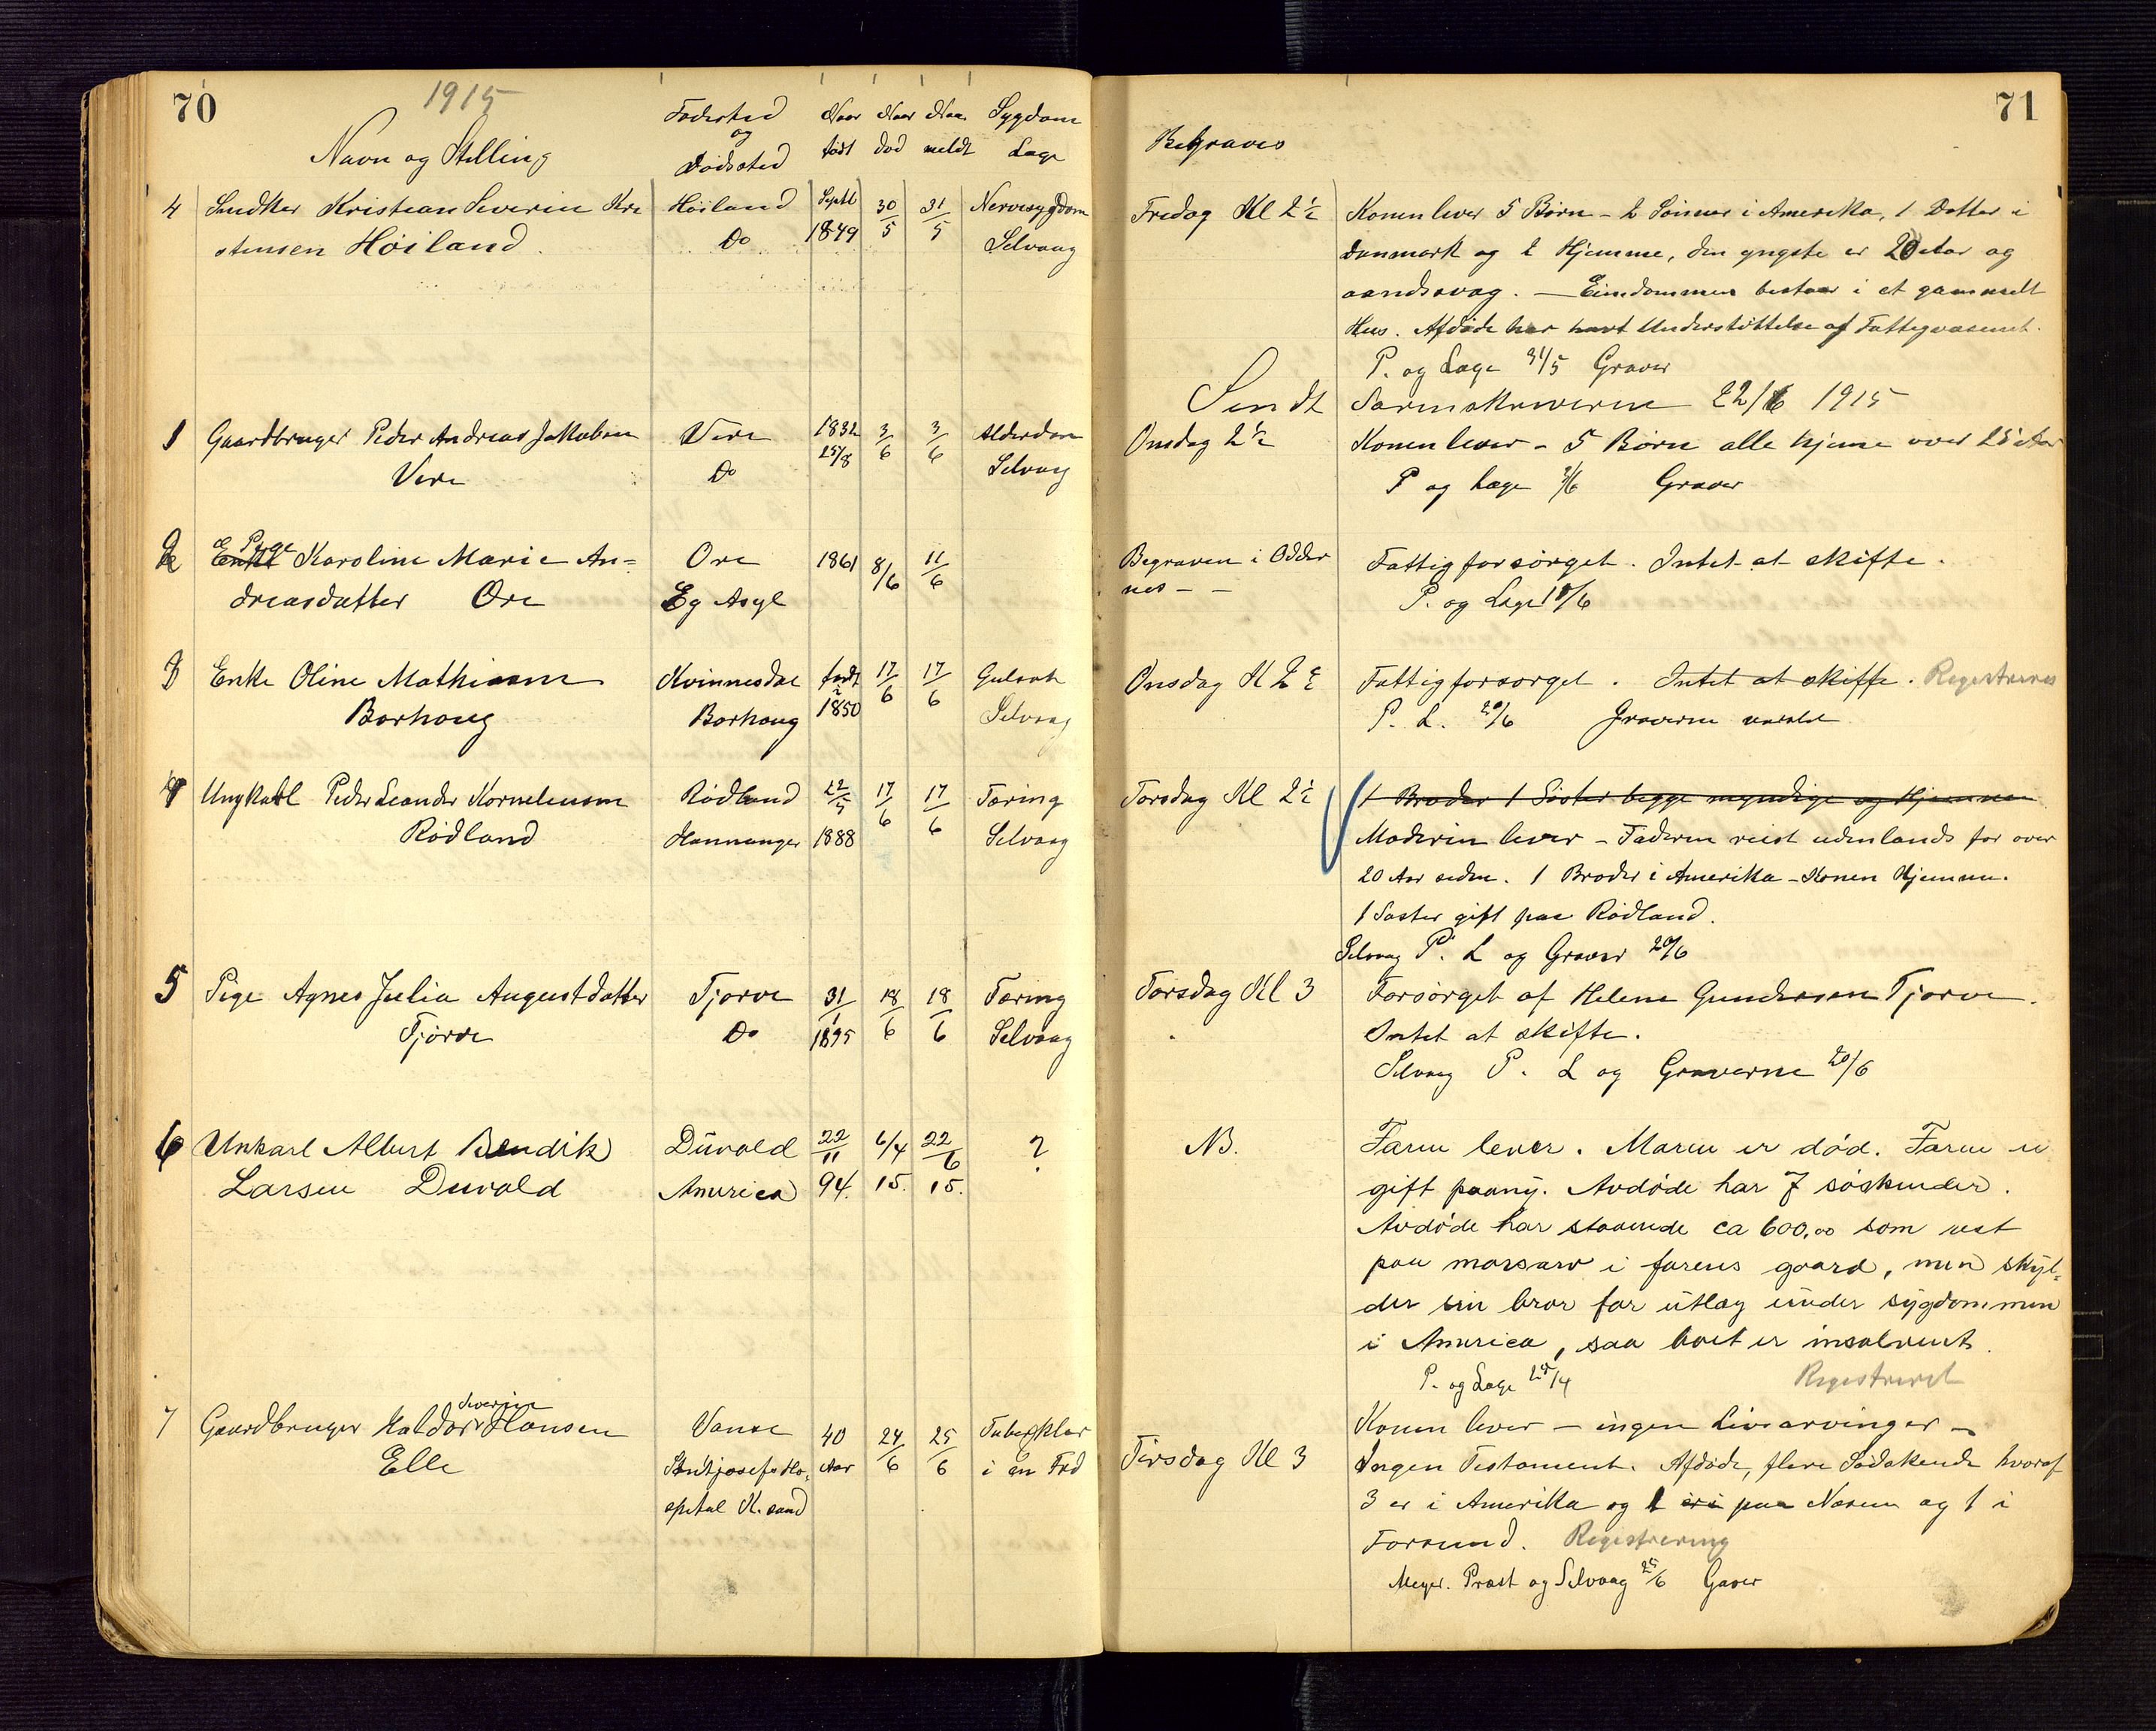 70
1915
Navn og Stilling
Fødested og Dødsted
Naar født
Naar død
Naar meldt
Sygdom Læge
4 Snedker Kristian Severin Kri
stensen Høiland
Høiland
Do
Septb
1849
30/5
31/5
Nervesygdom
Selvaag
1 Gaardbruger Peder Andreas Jakobsen
Vere
Vere
Do
1832
25/8
3/6
3/6
Alderdom
Selvaag
2 Enke Pige Karoline Marie An=
dreasdatter Ore
Ore
Eg Asyl
1861
8/6
11/6
3 Enke Oline Mathisen
Borhoug
Kvinnesdal
Borhoug
født
1850
17/6
17/6
Gulsot
Selvaag
4 Ungkarl Peder Leander Korneliussen
Rødland
Rødland
Hannanger
22/5
1888
17/6
17/6
Tæring
Selvaag
5 Pige Agnes Julia Augustdatter
Tjørve
Tjorve
Do
31/1
1895
18/6
18/6
Tæring
Selvaag
6 Unkarl Albert Bendik
Larsen Duvold
Duvold
America
22/11
94.
6/4
15.
22/6
15.
?
7 Gaardbruger Haldor Severin Hansen
Elle
Vanse
Sankt Josefs Ho=
spital K.sand
40
Aar
24/6
25/6
Tuberklor
i en Fod
71
Begraves
Fredag Kl 2½
Konen lever 5 Børn - 2 Sønner i Amerika, 1 Datter i
Danmark og 2 Hjemme, den yngste er 20 Aar og
aandssvag. — Eiendommen bestaar i et gammelt
Hus. Afdøde har havt Understøttelse af Fattigvæsenet.
P. og Læge 31/5 Graver
Sendt Sorenskriveren 22/6 1915
Onsdag 2½
Konen lever - 5 Børn alle hjeme over 25 Aar
P og Læge 3/6 Graver
Begraven i Odder
nes - -
Fattigforsørget. Intet at skifte.
P. og Læge 18/6
Onsdag Kl 2½
Fattigforsørget. Intet at skifte. Registreres
P. L. 20/6 Graverne varslet
Torsdag Kl 2½
1 Broder 1 Søster begge myndige og Hjemme
Moderen lever - Faderen reist udenlands for over
20 Aar siden. 1 Broder i Amerika - Konen Hjemme.
1 Søster gift paa Rødland.
Selvaag P. L og Graver 20/6
Torsdag Kl 3
Forsørget af Helene Gundersen Tjørve.
Intet at skifte.
Selvaag P. L og Graverne 20/6
NB.
Faren lever. Moren er død. Faren er
gift paany. Avdøde har 7 søskender.
Avdøde har staaende ca 600,00 som rest
paa morsarv i farens gaard, men skyl=
der sin bror for utlæg under sygdommen
i America, saa boet er insolvent.
P. og Læge 25/4 Registreret
Tirsdag Kl 3
Konen lever - ingen Livsarvinger -
Ingen Testament. Afdøde, flere Sødskende hvoraf
3 er i Amerika og 1 paa Næsen og 1 i
Farsund. Registrering
Meyer. Præst og Selvaag 25/6 Graver